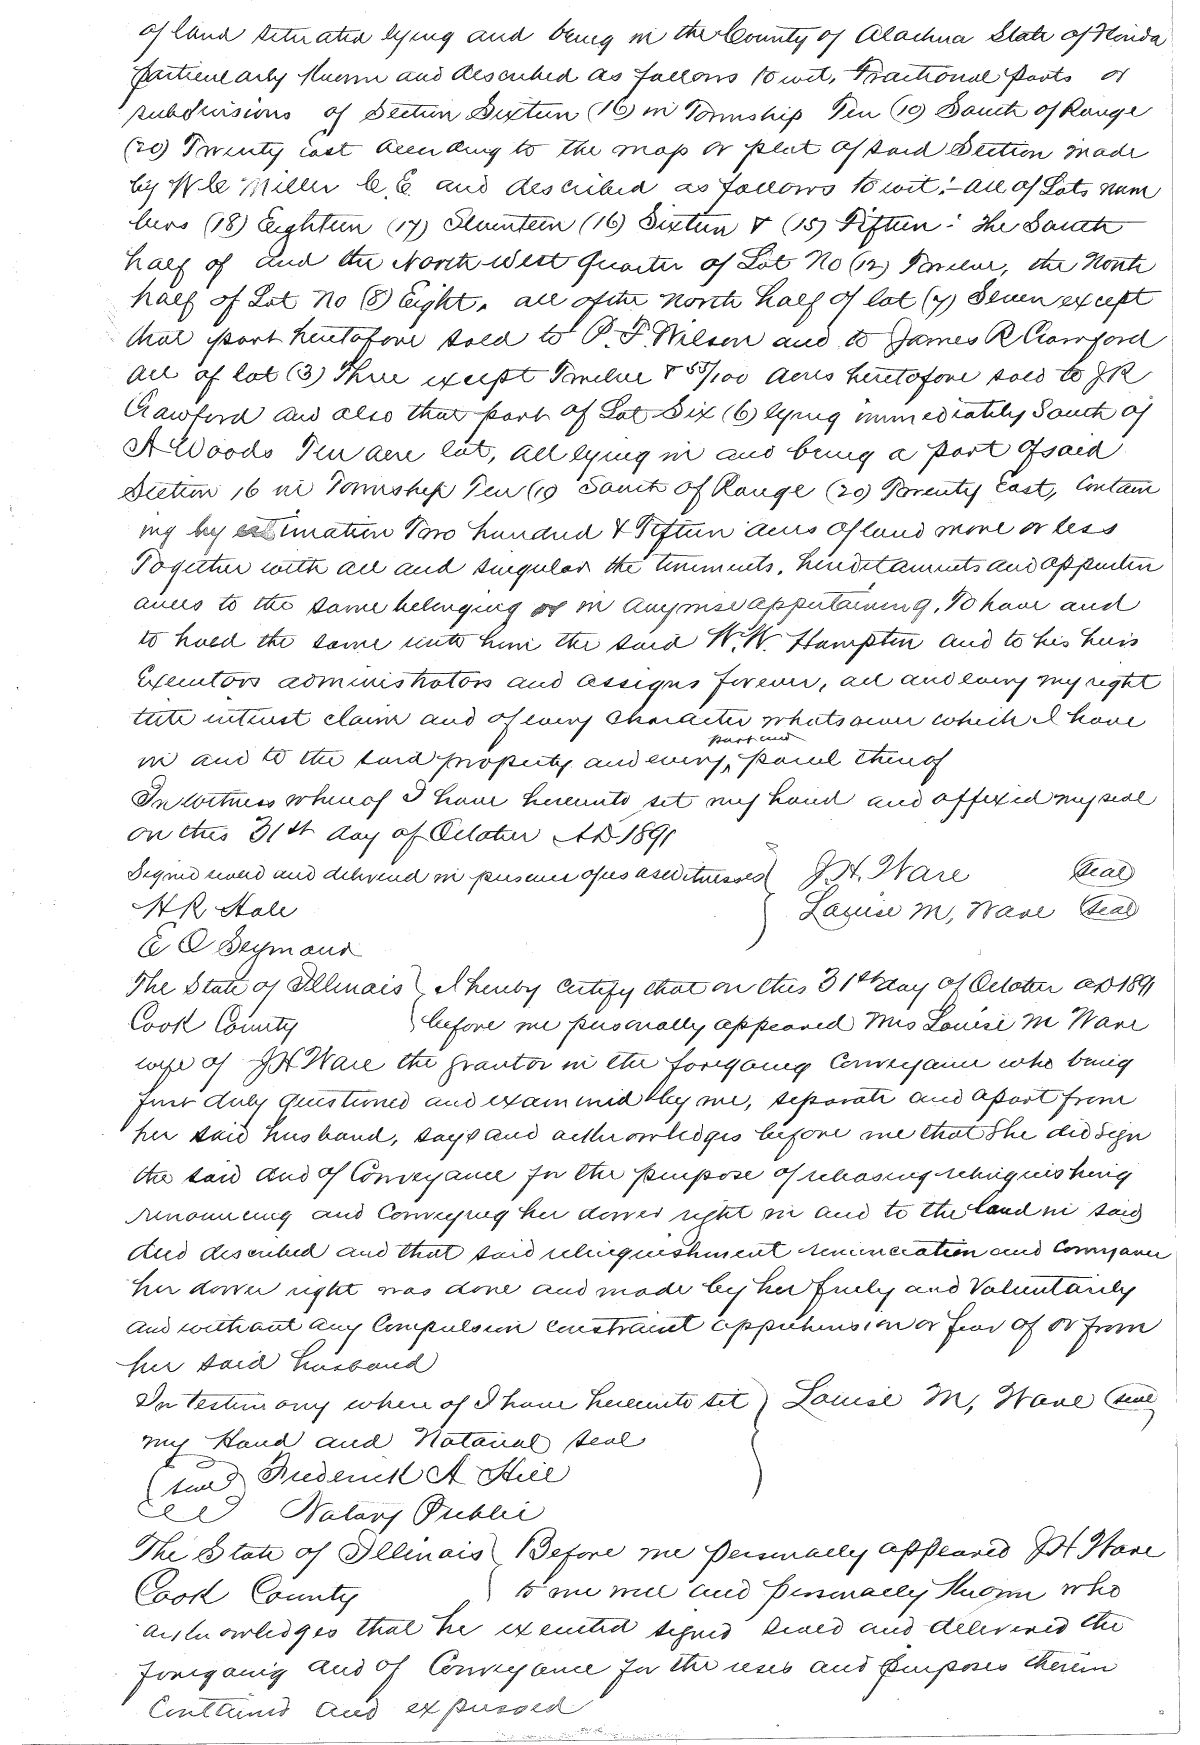 of land situated lying and being in the County of Alachua State of Florida
particularly known and described as follows to wit, Fractional parts or
subdivisions of Section Sixteen (16) in Township Ten (10) South of Range
(20) Twenty East according to the map or plat of said Section made
by N C Miller C. E. and described as follows to wit:- all of Lots num
bers (18) Eighteen (17) Seventeen (16) Sixteen & (15) Fifteen: The South
half of and the North West quarter of Lot No (12) Twelve, the North
half of Lot No (8) Eight. all of the North half of lot (7) Seven except
that part heretofore sold to P. F. Wilson and to James R Crawford
all of lot (3) Three except Twelve & 55/100 acres heretofore sold to J R
Crawford and also that part of Lot Six (6) lying immediately South of
A Woods Ten acre lot, all lying in and being a part of said
Section 16 in Township Ten (10 South of Range (20) Twenty East, Contain
ing by estimation Two hundred & Fifteen acres of land more or less
Together with all and singular the tenements, hereditaments and appurten
ances to the same belonging or in anywise appertaining, To have and
to hold the same unto him the said W. W. Hampton and to his heirs
Executors administrators and assigns forever, all and every my right
title interest claim and of every character whatsoever which I have
in and to the said property and every part and parcel thereof
In witness whereof I have hereunto set my hand and affixed my seal
on this 31st day of October AD 1891
Signed sealed and delivered in presence of us as witnesses J. H. Ware (Seal)
H R Hale Louise M, Ware (Seal)
E O Seymour
The State of Illinois I hereby certify that on this 31st day of October AD 1891
Cook County before me personally appeared Mrs Louise M Ware
wife of J H Ware the grantor in the foregoing Conveyance who being
first duly questioned and examined by me, separate and apart from
her said husband, says and acknowledges before me that She did sign
the said deed of Conveyance for the purpose of releasing relinquishing
renouncing and Conveying her dower right in and to the land in said
deed described and that said relinquishment renunciation and Conveyance
her dower right was done and made by her freely and Voluntarily
and without any Compulsion constraint apprehension or fear of or from
her said husband
In testimony where of I have hereunto set Louise M, Ware (seal
my Hand and Notarial seal
(seal) Frederick A Hill
Notary Public
The State of Illinois Before me personally appeared J H Ware
Cook County to me well and personally known who
acknowledges that he executed signed sealed and delivered the
foregoing deed of Conveyance for the uses and purposes therein
Contained and expressed